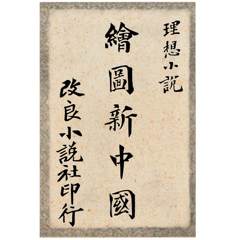 理想小說
繪圖新中國
改良小說社印行